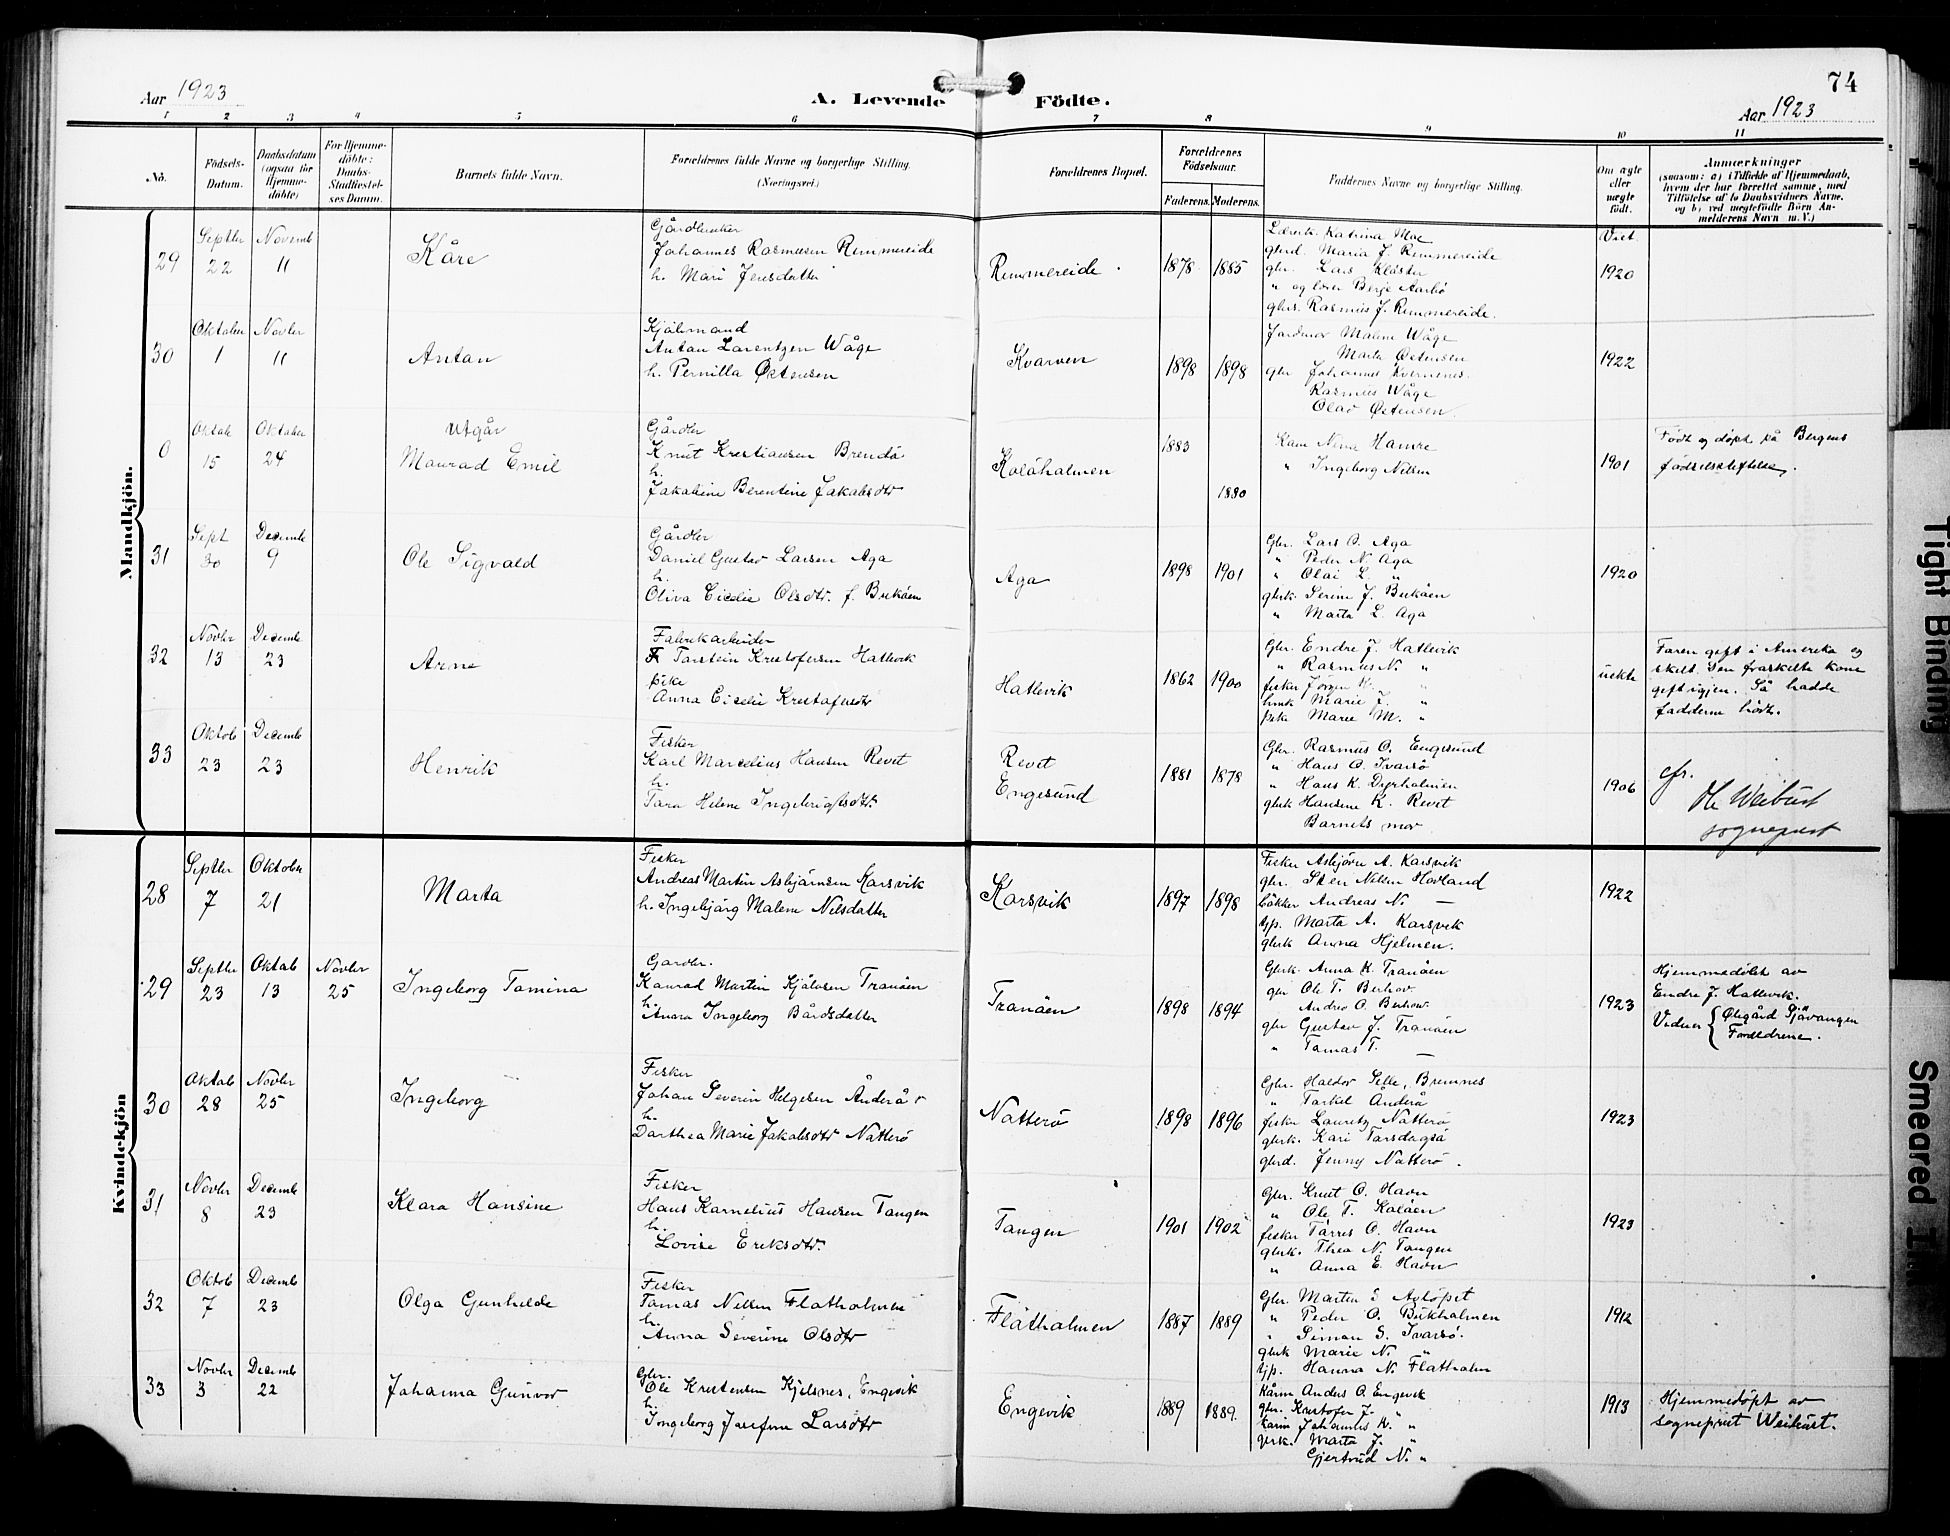 Aar 1923
A. Levende Födte.
74
Aar 1923
1 2 3 4 5 6 7 8 9 10 11
No.
Födsels-Datum.
Daabsdatum (ogsaa for Hjemme-döbte)
For Hjemme-döbte: Daabs-Stadfæstel-ses Datum.
Barnets fulde Navn.
Forældrenes fulde Navne og borgerlige Stilling
(Næringsvei.)
Forældrenes Bopæl.
Forældrenes Födselsaar.
Faderens. Moderens.
Faddernes Navne og borgerlige Stilling.
Om ægte eller uægte født.
Anmærkninger
(saasom: a) i Tilfælde af Hjemmedaab,
hvem der har forrettet samme, med
Tilföielse af to Daabsvidners Navne.
og b) ved uægtefödte Börn An-
melderens Navn m. V.)
Mandkjön.
29
Septbr 22
Novemb 11
Kåre
Gårdbruker
Johannes Rasmusen Remmereide
h. Mari Jensdatter
Remmereide
1878 1885
Lærerk. Katrina Moe
gbrd. Maria J. Remmereide
gbr. Lars Kloster
" og lærer Berje Aarbö
gbrs. Rasmus J. Remmereide.
Viet. 1920
30
Oktober 1
Novbr 11
Antan
Anton Larentzen Wåge
h. Pernilla Østensen
Kvarven
1898 1898
Jordmor Malene Wåge
Marta Østensen
gbr Johannes
Rasmus Wåge
Olav Østensen
1922
0
Oktob 15
Oktober 24
Utgår
Emil
Gårdbr
Knut Kristiansen Brendö
h.
Jakobine Berentine Jakobsdtr
Kolåholmen
1883
1880
Nina Hamre
" Ingeborg Nilsen
1901
Födt og döpt på Bergens
födselsstiftelse.
31
Sept 30
Decemb 9
Ole Sigvald
Gårdbr
Daniel Gustav Larsen Aga
h.
Oliva Cicelie Olsdtr. f.
Aga
1898 1901
Gbr. Lars O. Aga
" Peder N. Aga
" Olai L. "
gbrk. Serine J.
" Marta L. Aga
1920
32
Novbr 13
Decemb 23
Arne
Fabrikarbeider
Torstein Kristofersen Hatlevik
pike
Anna Cicelie Kristofersdtr
Hatlevik
1862 1900
Gbr. Endre J. Hatlevik
" Rasmus N. "
fisker Jörgen K. "
Marie J. "
pike Marie M. "
uekte
Faren gift i Amerika og
skilt. Den fraskilte kone
gift igjen. Så hadde
fadderne hört.
33
Oktob 23
Decemb 23
Henrik
Fisker
Karl Marcelius Hansen Revet
h.
Tora Helene Ingebrigtsdtr
Revet
Engesund
1881 1878
Gbr. Rasmus O. Engesund
" Hans O. Ivarsö
" Hans K. Dyrholmen
gbrk Hansine K. Revet
Barnets mor
1906
cfr.
Weibüst
sogneprest
Kvindekjön
28
Septbr 7
Oktober 21
Marta
Fisker
Andreas Martin Asbjörnsen Korsvik
h. Ingebjörg Malene Nilsdatter
Korsvik
1897 1898
Fisker Asbjörn A. Korsvik
gbr. Sten Nilsen Hovland
bökker Andreas N. —
tjp. Marta A. Korsvik
gbrk Anna Hjelmen.
1922
29
Septbr 23
Oktob 13
Novbr 25
Ingeborg Tomina
Gårdbr.
Konrad Martin Kjålsen Tranöen
h.
Anna Ingeborg Bårdsdatter
Tranöen
1898 1894
Gbrk. Anna K. Tranöen
gbr Ole T.
Andrea O.
gbr Gustav J. Tranöen
" Tomas T. —
1923
Hjemmedöbt av
Endre J. Hatlevik.
Vidner { Sjövangen
Foreldrene.
30
Oktob 28
Novbr 25
Ingeborg
Fisker
Johan Severin Helgesen Ånderå
h.
Dorthea Marie Jakobsdtr Natterö
Natterö
1898 1896
Gbr. Haldor Selle, Bremnes
" Torkel Ånderå
fisker Lauritz Natterö
gbrk. Kari
gbrd. Jenny Natterö.
1923
31
Novbr 8
Decemb 23
Klara Hansine
Fisker
Hans Kornelius Hansen Tangen
h.
Lovise Eriksdtr.
Tangen
1901 1902
Gbr. Knut O. Havn
" Ole T. Kolåen
fisker Torres O. Havn
gbrk. Thea N. Tangen
" Anna E. Havn
1923
32
Oktob 7
Decemb 23
Olga Gunhilde
Fisker
Tomas Nilsen Flatholmen
h.
Anna Severine Olsdtr
Flåtholmen
1887 1889
Gbr. Martin
" Peder O.
" Simon S. Ivarsö.
gbrk Marie N. "
tjp. Hanna N. Flatholm
1912
33
Novbr 3
Decemb 22
Johanna Gunvor
Gbr.
Ole Kristensen Kjelsnes, Engevik
h.
Ingeborg Josefine Larsdtr
Engevik
1889 1889.
Anders O. Engevik
gbr. Kristofer J. "
Johannes K. "
gbrk. Marta J. "
Gjertrud N. "
1913
Hjemmedöpt av
sogneprest Weibüst.
Tight Binding
Smeared Ink